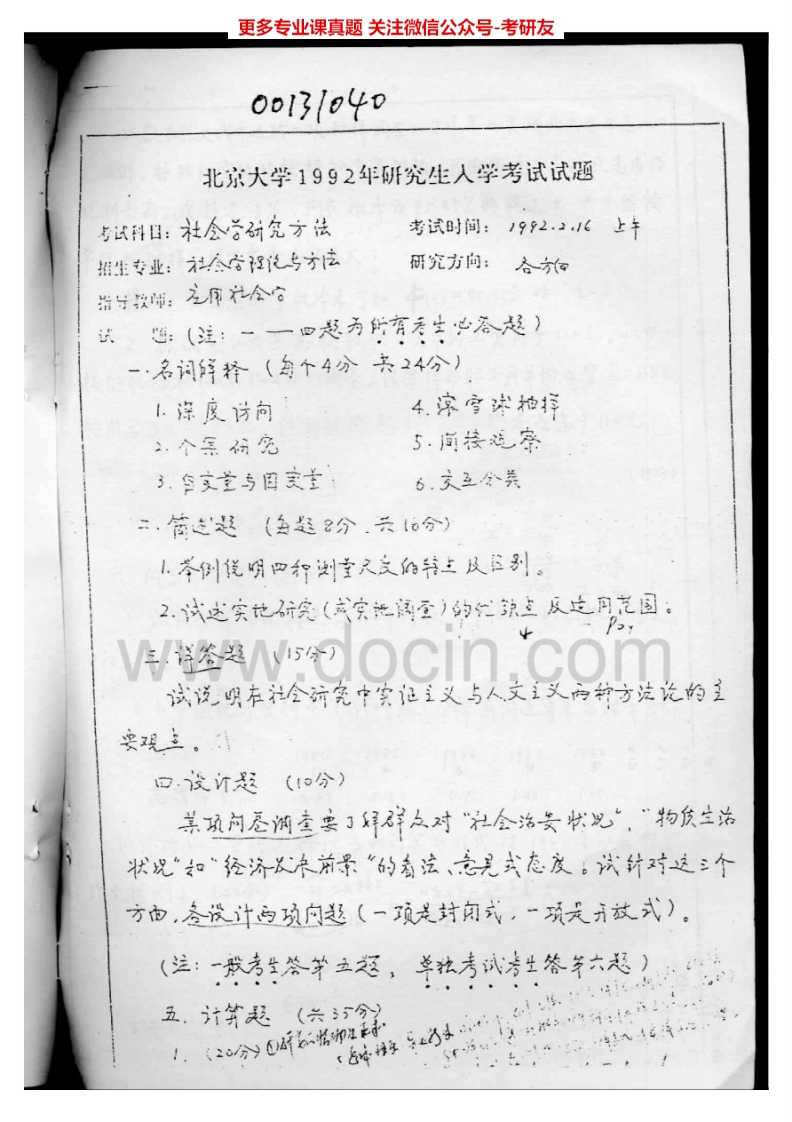 更多专业课真题 关注微信公众号-考研友
00131040
北京大学1992年研究生入学考试试题
考试科目：社会学研究方法 考试时间：1992.2.16 上午
招生专业：社会学理论与方法 研究方向：各方向
指导教师：应用社会学
试 题：（注：一——四题为所有考生必答题）
一.名词解释（每个4分 共24分）
1.深度访问 4.滚雪球抽样
2.个案研究 5.间接观察
3.自变量与因变量 6.交互分类
二.简述题（每题8分，共16分）
1.举例说明四种测量尺度的特点及区别。
2.试述实地研究（或实地调查）的优缺点及适用范围。
www.docin.com
三.详答题（15分）
试说明在社会研究中实证主义与人文主义两种方法论的主
要观点。
四.设计题（10分）
某项问卷调查要了解群众对“社会治安状况”，“物质生活
状况”和“经济发展前景”的看法、意见或态度。试针对这三个
方面，各设计两项问题（一项是封闭式，一项是开放式）。
（注：一般考生答第五题，单独考试考生答第六题）
五.计算题（共35分）
1.（20分）